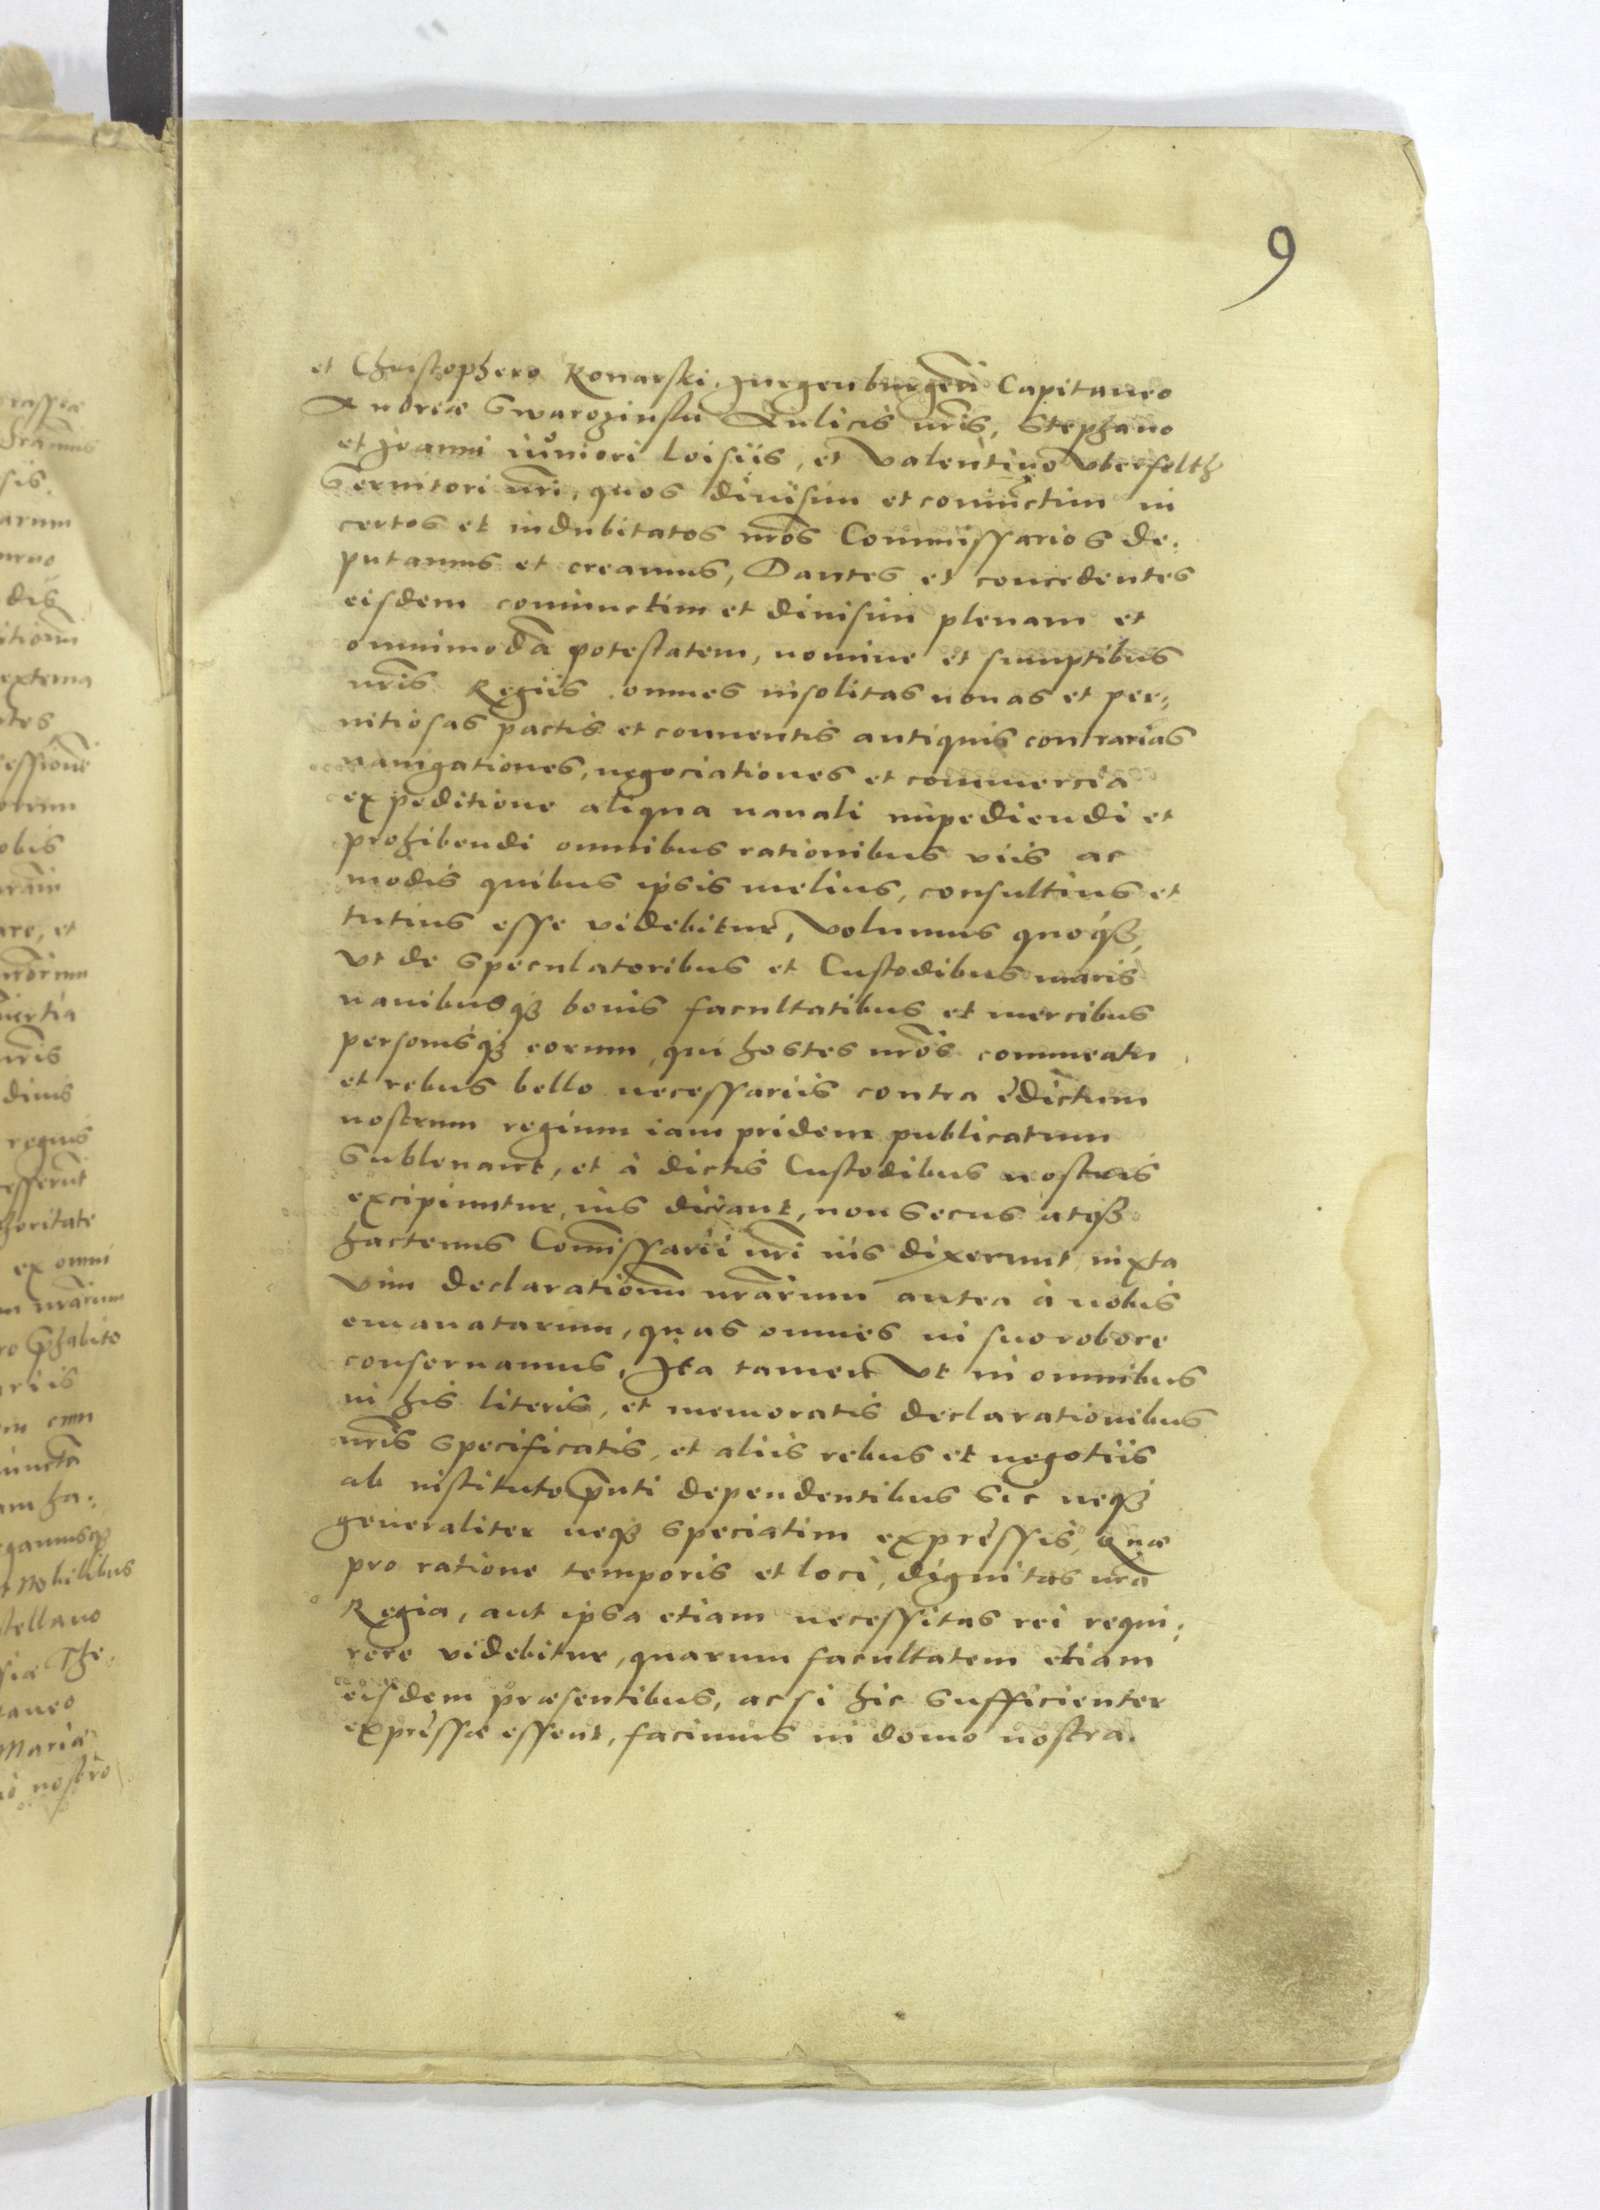 9
et Christophero Konarski, Juegenburgen̄ Capitaneo
Andreæ Swarozinski Aulicis nr̄is, Stephano
et Joanni iuniori Loisiis, et Valentino Vberfelth
Seruitori nr̄i, quos diuisim et coniunctim in
certos et indubitatos nr̄os Commissarios de-
putamus et creamus, Dantes et concedentes
eisdem coniunctim et diuisim plenam et
omnimodā potestatem, nomine et sumptibus
nr̄is Regiis omnes insolitas nouas et per-
nitiosas pactis et conuentis antiquis contrarias
nauigationes, negociationes et commercia
expeditione aliqua nauali impediendi et
prohibendi omnibus rationibus viis ac
modis quibus ipsis melius, consultius et
tutius esse videbitur, Volumus quoqꝫ,
Vt de speculatoribus et Custodibus maris
nauibusqꝫ bonis facultatibus et mercibus
personisqꝫ eorum, qui hostes nr̄os commeatu
et rebus bello necessariis contra edictum
nostrum regium iam pridem publicatum
subleuant, et à dictis Custodibus nostris
excipiuntur, ius dicant, non secus atqꝫ
hactenus Com̄issarii nr̄i ius dixerunt iuxta
Vim declarationum nr̄arum antea à nobis
emanatarum, quas omnes in suo robore
conseruamus, Ita tamen Vt in omnibus
in his literis, et memoratis declarationibus
nr̄is specificatis, et aliis rebus et negotiis
ab instituto p̄nti dependentibus sic neqꝫ
generaliter neqꝫ speciatim expressis, Quæ
pro ratione temporis et loci, dignitas nr̄a
Regia, aut ipsa etiam necessitas rei requi-
rere videbitur, quarum facultatem etiam
eisdem præsentibus, ac si hic sufficienter
expressæ essent, facimus in domo nostra.